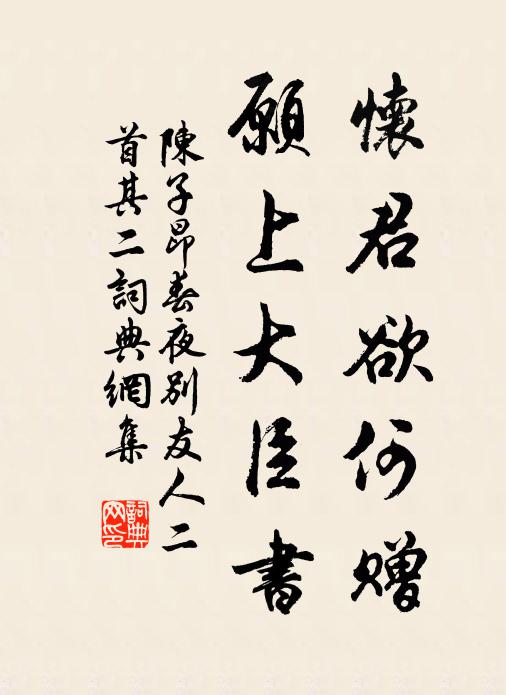 懷君欲何贈
願上大臣書
陳子昂春夜别友人二
首其二詞典網集
詞典网印